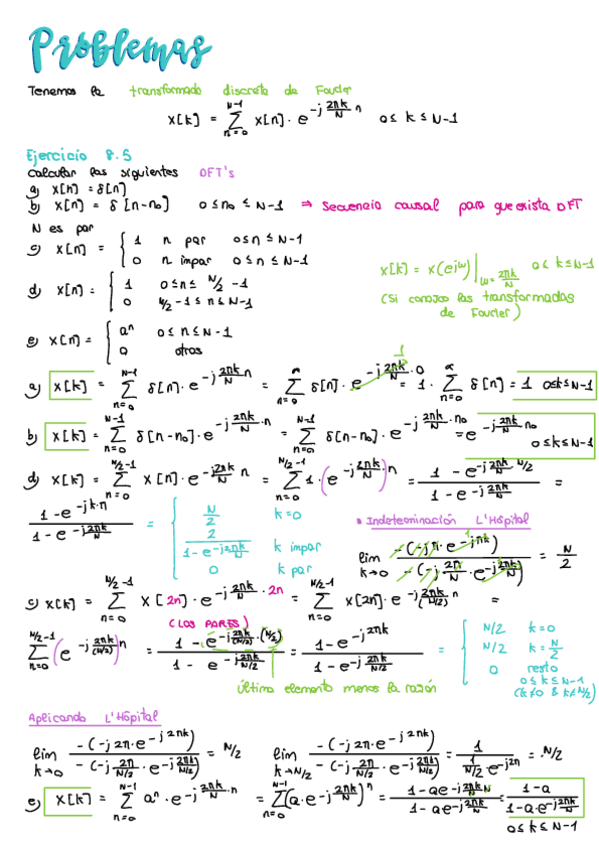 Problemas
Tenemos la transformada discreta de Fourier
X[k] = Σ_{n=0}^{N-1} x[n] · e^{-j 2πk/N n}   0 ≤ k ≤ N-1
Ejercicio 8.5
Calcular las siguientes DFT's
a) x[n] = δ[n]
b) x[n] = δ[n-n₀]   0 ≤ n₀ ≤ N-1 ⇒ Secuencia causal para que exista DFT
N es par
c) x[n] = { 1 n par 0≤n≤N-1
0 n impar 0≤n≤N-1
X[k] = X(e^{jω})|_{ω = 2πk/N}   0 ≤ k ≤ N-1
(Si conozco las transformadas
de Fourier)
d) x[n] = { 1 0≤n≤ N/2 -1
0 N/2 -1 ≤ n ≤ N-1
e) x[n] = { aⁿ 0≤n≤N-1
0 otros
a) X[k] = Σ_{n=0}^{N-1} δ[n] · e^{-j 2πk/N n} = Σ_{n=0}^{∞} δ[n] · e^{-j 2πk/N · 0} = 1 · Σ_{n=0}^{∞} δ[n] = 1   0≤k≤N-1
b) X[k] = Σ_{n=0}^{N-1} δ[n-n₀] · e^{-j 2πk/N · n} = Σ_{n=0}^{N-1} δ[n-n₀] · e^{-j 2πk/N · n₀} = e^{-j 2πk/N n₀}
0≤k≤N-1
d) X[k] = Σ_{n=0}^{N/2-1} x[n] · e^{-j 2πk/N n} = Σ_{n=0}^{N/2-1} 1 · (e^{-j 2πk/N})ⁿ = (1 - e^{-j 2πk/N · N/2}) / (1 - e^{-j 2πk/N}) =
(1 - e^{-jk·π}) / (1 - e^{-j 2πk/N}) = { N/2 k=0
2 / (1 - e^{-j 2πk/N}) k impar
0 k par
• Indeterminación L'Hôpital
lim_{k→0} -(-jπ · e^{-jπk}) / -(-j 2π/N · e^{-j 2πk/N}) = N/2
c) X[k] = Σ_{n=0}^{N/2-1} x[2n] · e^{-j 2πk/N · 2n} = Σ_{n=0}^{N/2-1} x[2n] · e^{-j 2πk/(N/2) n} =
(LOS PARES)
Σ_{n=0}^{N/2-1} (e^{-j 2πk/(N/2)})ⁿ = (1 - e^{-j 2πk/(N/2) · (N/2)}) / (1 - e^{-j 2πk/N/2}) = (1 - e^{-j2πk}) / (1 - e^{-j 2πk/N/2}) = { N/2 k=0
N/2 k= N/2
0 resto
0≤k≤N-1
(k≠0 & k≠N/2)
Último elemento menos la razón
Aplicando L'Hôpital
lim_{k→0} -(-j2π·e^{-j2πk}) / -(-j 2π/N/2 · e^{-j 2πk/N/2}) = N/2   lim_{k→N/2} -(-j2π·e^{-j2πk}) / -(-j 2π/N/2 · e^{-j 2πk/N/2}) = 1 / (1/N/2 e^{-j2π}) = N/2
e) X[k] = Σ_{n=0}^{N-1} aⁿ · e^{-j 2πk/N · n} = Σ_{n=0}^{N-1} (a·e^{-j 2πk/N})ⁿ = (1 - a e^{-j 2πk/N N}) / (1 - a e^{-j 2πk/N}) = (1-a) / (1-a·e^{-j 2πk/N})
0≤k≤N-1